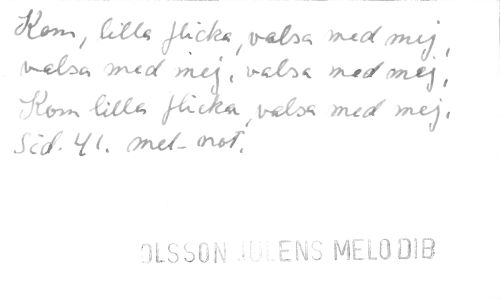 Kom, lilla flicka, valsa med mej,
valsa med mej, valsa med mej,
Kom lilla flicka, valsa med mej.
Sid. 41. mel-not.
OLSSON JULENS MELODIB